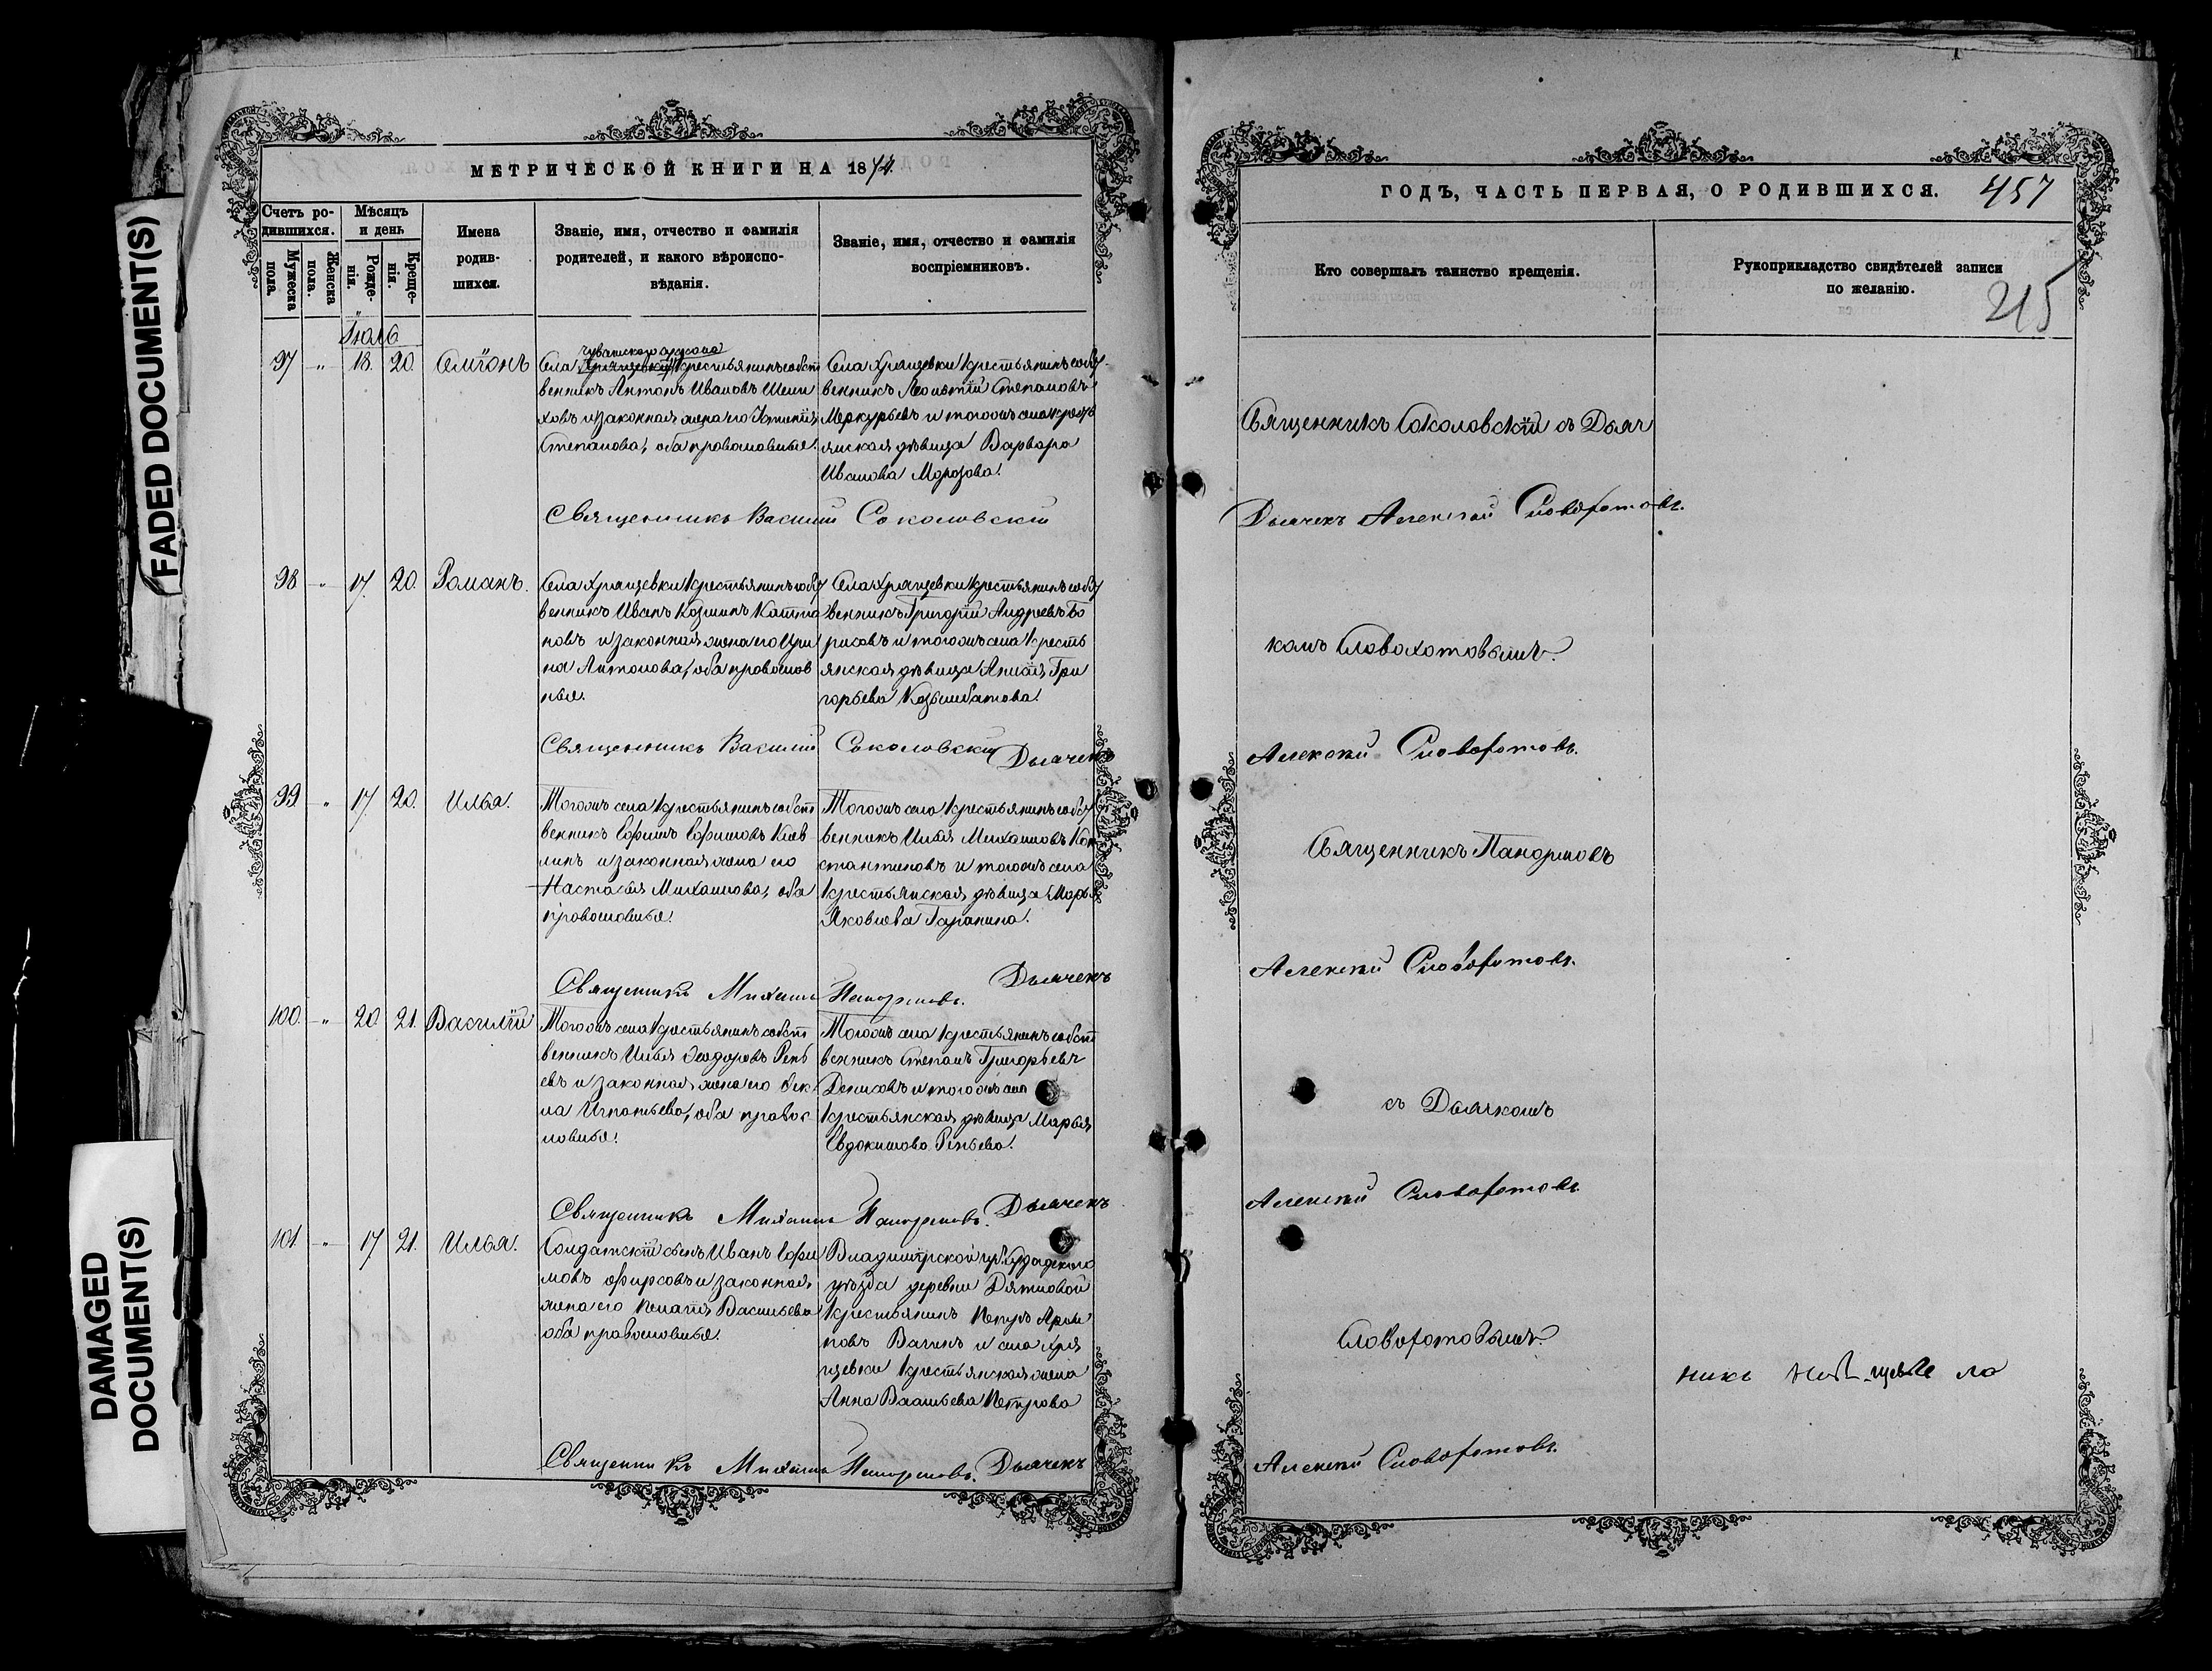 FADED DOCUMENT(S)
DAMAGED
DOCUMENT(S)
МЕТРИЧЕСКОЙ КНИГИ НА 1874.
Счетъ ро-
дившихся.
Мужеска
пола.
Женска
пола.
Мѣсяцъ
и день
Рожде-
нія.
Креще-
нія.
Имена
родив-
шихся.
Званіе, имя, отчество и фамилія
родителей, и какого вѣроиспо-
вѣданія.
Званіе, имя, отчество и фамилія
воспріемниковъ.
Іюль
97 " 18. 20. Симіонъ
Села крестьянинъ собст
венникъ Антонъ Ивановъ
ховъ и законная жена его
Степанова, оба православные.
Села Хрящевки крестьянинъ собст
венникъ Леонтій Степановъ
Меркурьевъ и тогожъ села кресть
янская дѣвица Варвара
Иванова Морозова.
Священникъ Василій Соколовскій
98 " 17. 20. Романъ.
Села Хрящевки крестьянинъ собст
венникъ Иванъ Козминъ
новъ и законная жена его Ири
на Антонова, оба православ
ные.
Села Хрящевки крестьянинъ собст
венникъ Григорій Андреевъ Бо
рисовъ и тогожъ села кресть
янская дѣвица Гри
горьева
Священникъ Василій Соколовскій Дьячекъ
99 " 17. 20. Илья.
Тогожъ села крестьянинъ собст
венникъ Ефимъ Ефимовъ
линъ и законная жена его
Настасія Михаилова, оба
православные.
Тогожъ села крестьянинъ собст
венникъ Илья Михаиловъ Кон
стантиновъ и тогожъ села
крестьянская дѣвица Марья
Яковлева Гаранина.
Священникъ Михаилъ Панормовъ. Дьячекъ
100 " 20 21. Василій
Тогожъ села крестьянинъ собст
венникъ Илья Ѳеодоровъ Репь
евъ и законная жена его Ѳек
ла Игнатьева, оба правос
лавные.
Тогожъ села крестьянинъ собст
венникъ Степанъ Григорьевъ
Денисовъ и тогожъ села
крестьянская дѣвица Марья
Евдокимова Репьева.
Священникъ Михаилъ Панормовъ. Дьячекъ
101. " 17 21. Илья.
Солдатскій сынъ Иванъ Ефи
мовъ Фирсовъ и законная
жена его Пелагія Васильева
оба православные.
Владимірской губ.
уѣзда деревни
крестьянинъ Петръ
повъ и села Хря
щевки крестьянская жена
Анна Васильева Петрова
Священникъ Михаилъ Панормовъ. Дьячекъ
ГОДЪ, ЧАСТЬ ПЕРВАЯ, О РОДИВШИХСЯ. 457
Кто совершалъ таинство крещенія.
Рукоприкладство свидѣтелей записи
по желанію.
215
Священникъ Соколовскій съ Дьяч
Дьячекъ Алексѣй Словохотовъ.
комъ Словохотовымъ.
Алексѣй Словохотовъ.
Священникъ Панормовъ
Алексѣй Словохотовъ.
съ Дьячкомъ
Алексѣй Словохотовъ.
Словохотовымъ.
никъ
Алексѣй Словохотовъ.